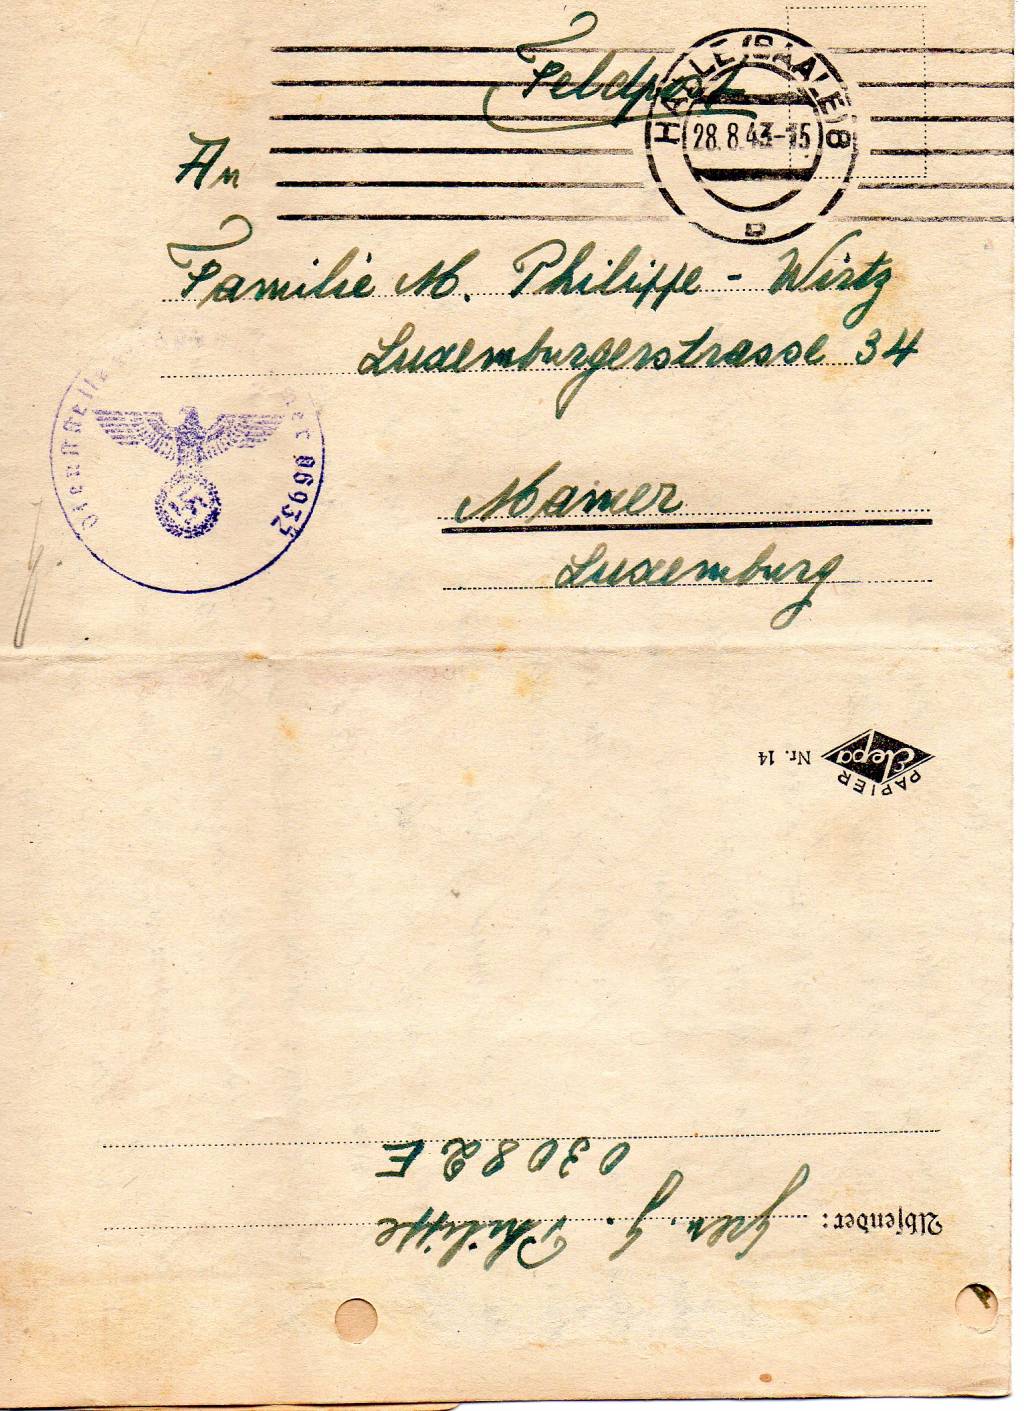 Feldpost
HALLE (SAALE) 8
28.8.43-15
D
An
Familie M. Philippe - Wirtz
Luxemburgerstrasse 34
Mamer
Luxemburg
06932
PAPIER
Elepa
Nr. 14
Absender: Gren. G. Philippe
03082 E